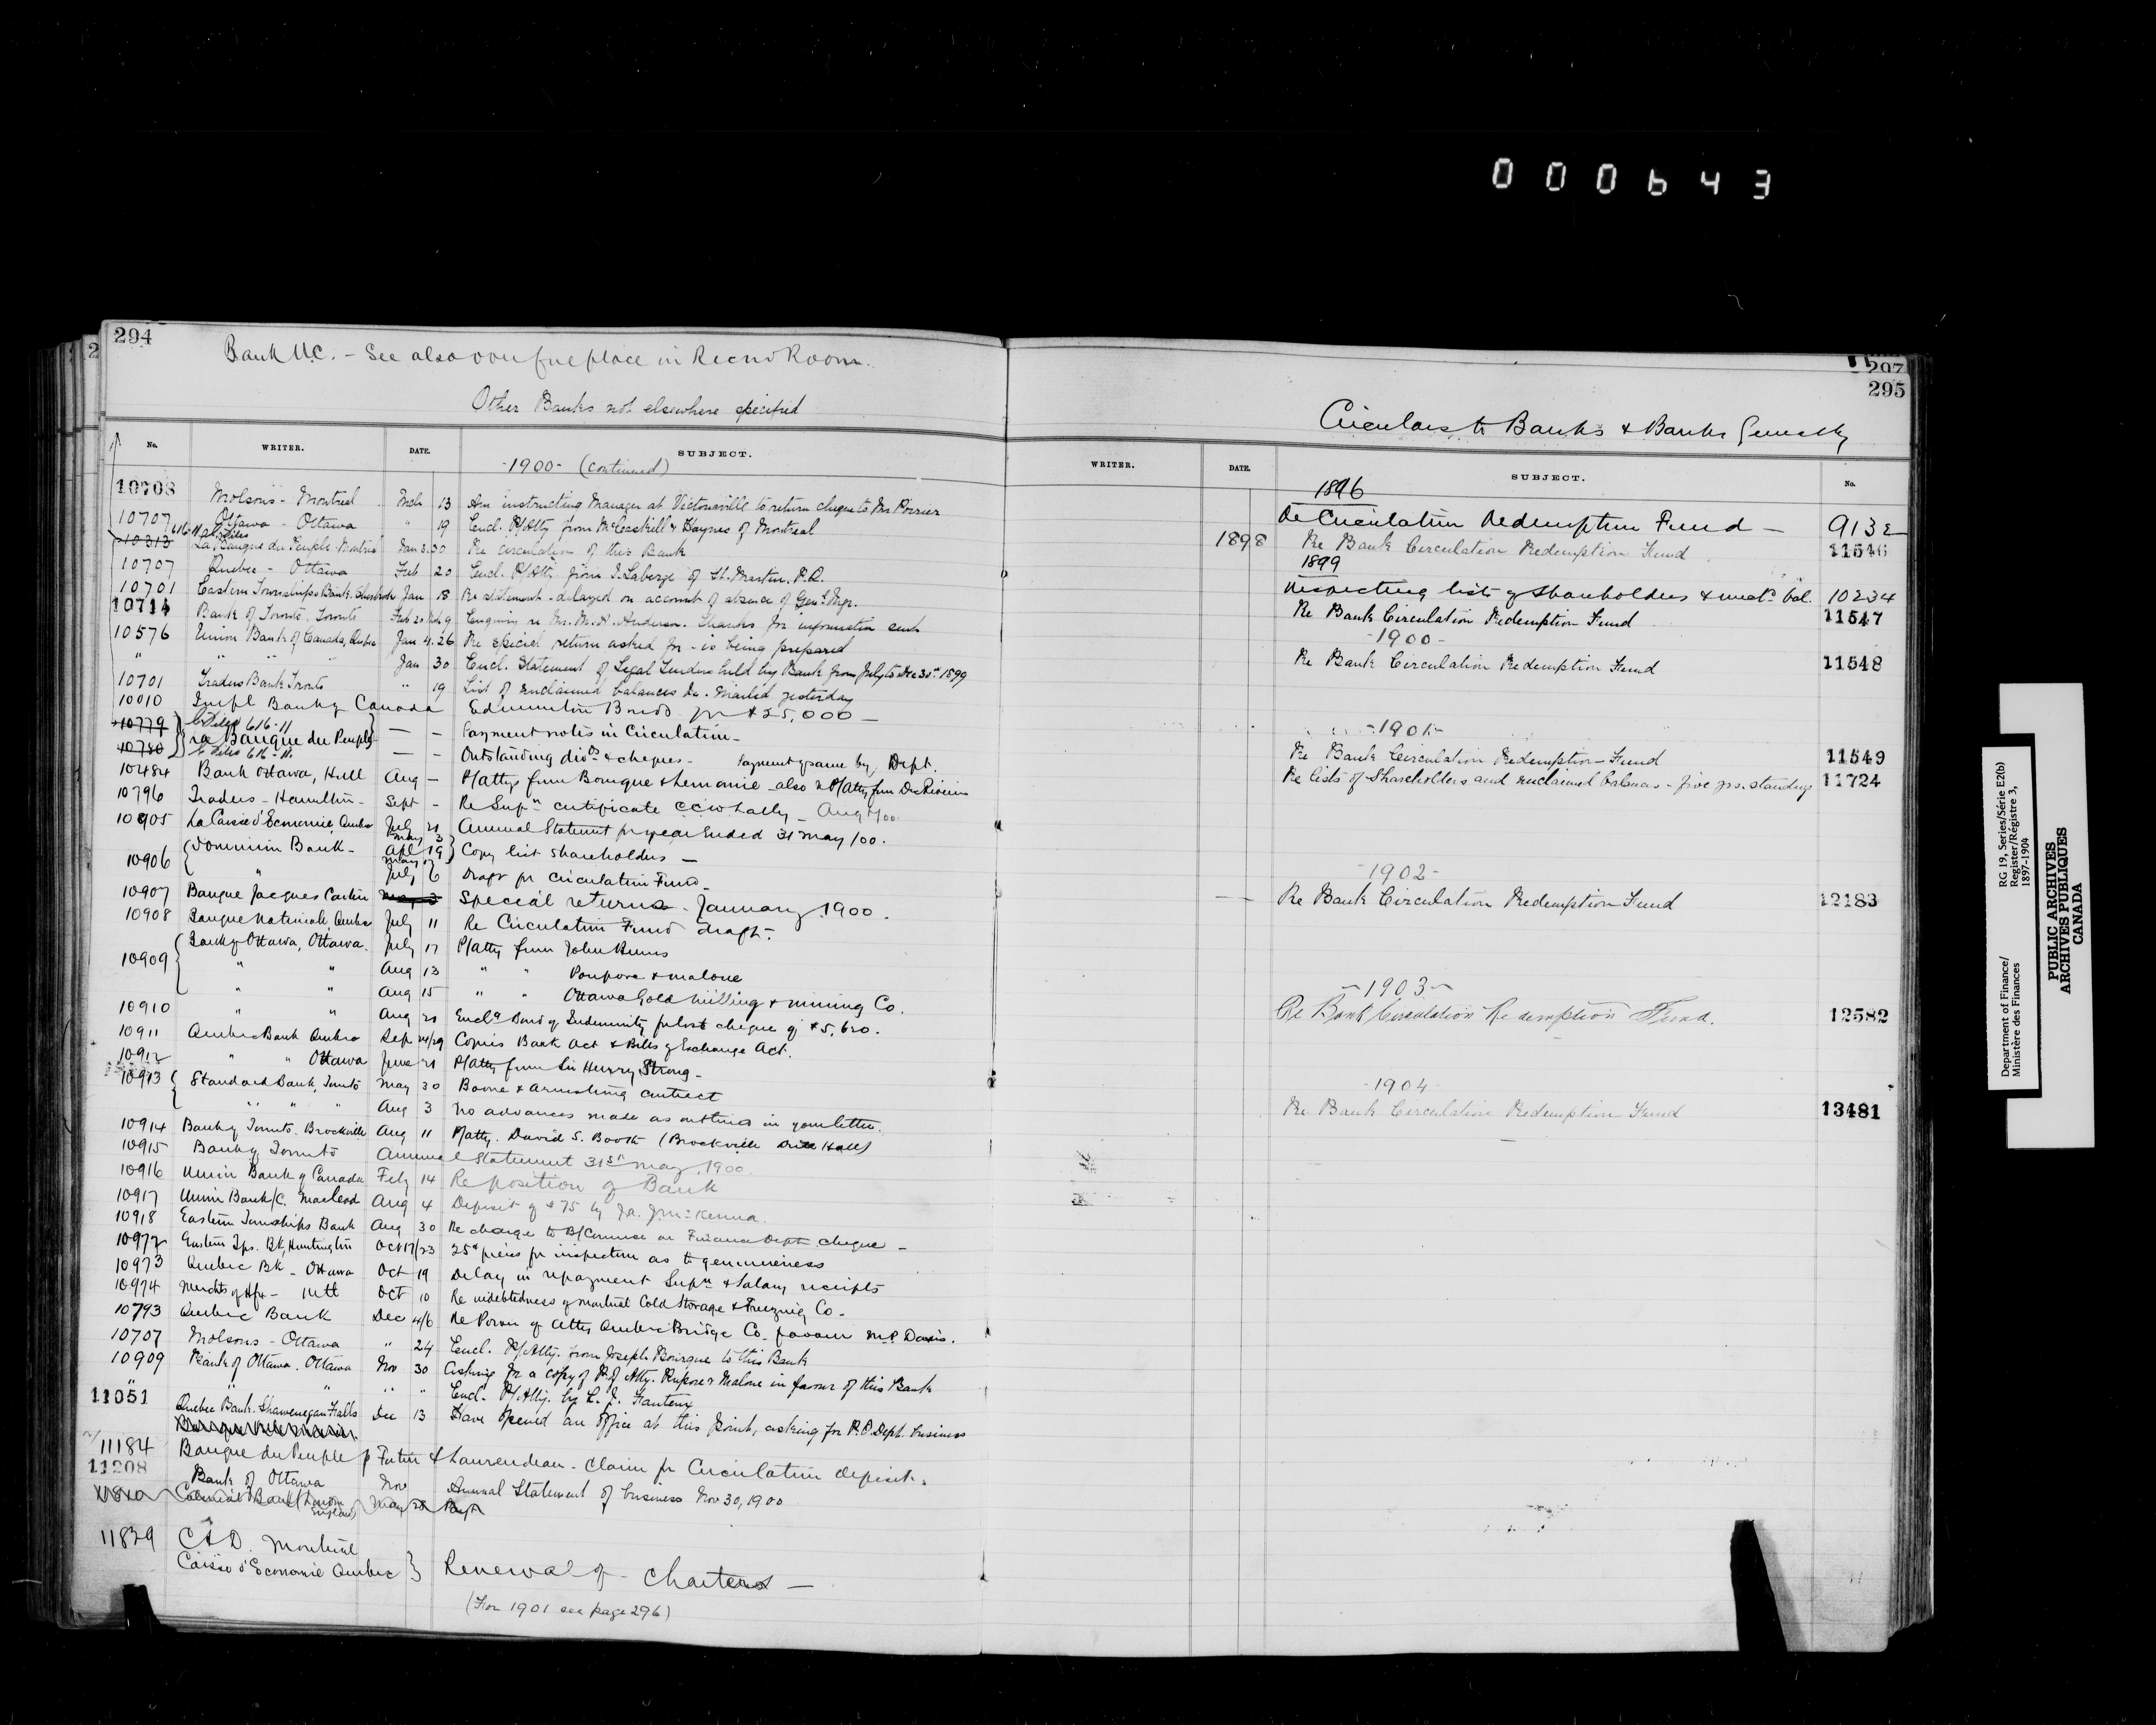 000643
294
Bank U.C. - See also over fireplace in Record Room.
Other Banks not elsewhere specified
No. WRITER. DATE. SUBJECT.
-1900- (continued)
10708 Molsons - Montreal Mch 13 Am instructing Manager at Victoriaville to return cheque to Mr Poirier
10707 Ottawa - Ottawa " 19 Encl. P/Atty from McCaskill & Haynes of Montreal
616-11 C. Files
10313 La Banque du Peuple Montreal Jan 3.30 Re circulation of this Bank
10707 Quebec - Ottawa Feb 20 Encl. P/Atty from J. Laberge of St. Martin. P.Q.
10701 Eastern Townships Bank. Sherbrooke Jan 18 Re statement - delayed on account of absence of Genl Mgr.
10714 Bank of Toronto. Toronto Feb 20 Feb 9 Enquiry re Mr. M. A. Anderson. Thanks for information sent
10576 Union Bank of Canada, Quebec Jan 4.26 Re special return asked for - is being prepared
" " " " Jan 30 Encl. Statement of Legal Tenders held by Bank from July to Dec 30th 1899
10701 Traders Bank Toronto " 19 List of unclaimed balances &c. mailed yesterday
10010 Impl Bank of Canada Edmonton Bonds for $25,000 —
10779 C Files 616-11
La Banque du Peuple — — Payment notes in Circulation -
10780 C Files 616-11. — — Outstanding divds & cheques - payment of same by Dept.
10484 Bank Ottawa, Hull Aug — P/Atty from Bourque & Lemoine - also P/Atty from Des Rivieres
10796 Traders - Hamilton - Sept - Re Supn certificate C C Whally - Aug 1/00.
10905 La Caisse d'Economie, Quebec Jul 21 Annual Statement for year Ended 31 May /00.
10906 Dominion Bank - May 3 Apl 19 May 17 Copy list shareholders —
" July 6 Draft for Circulation Fund -
10907 Banque Jacques Cartier May 3 Special returns - January 1900.
10908 Banque Nationale, Quebec July 11 Re Circulation Fund draft.
10909 Bank of Ottawa, Ottawa. July 17 P/Atty from John Burns
" " Aug 13 " " Poupore & Malone
" " Aug 15 " " Ottawa Gold Milling & Mining Co.
10910 " " Aug 21 Encl. Bond of Indemnity for lost cheque of $5,620.
10911 Quebec Bank Quebec Sep 24/29 Copies Bank Act & Bills of Exchange Act.
10912 " " Ottawa June 21 P/Atty from Sir Henry Strong -
10913 Standard Bank, Toronto May 30 Boone & Armstrong contract
" " " " Aug 3 no advances made as outlined in your letter.
10914 Bank of Toronto. Brockville Aug 11 P/Atty. David S. Booth (Brockville Drill Hall)
10915 Bank of Toronto Annual Statement 31st May, 1900.
10916 Union Bank of Canada Feby 14 Re position of Bank
10917 Union Bank/C. Macleod Aug 4 Deposit of $75 by Ja. J. McKenna.
10918 Eastern Townships Bank Aug 30 Re charge to B/Commerce on Finance Dept cheque -
10972 Eastern Tps. Bk, Huntington Oct 17/23 25¢ pieces for inspection as to genuineness
10973 Quebec Bk - Ottawa Oct 19 Delay in repayment Supn & Salary receipts
10974 Merchts of Hfx - Mtl Oct 10 Re indebtedness of Montreal Cold Storage & Freezing Co -
10793 Quebec Bank Dec 4/6 Re Power of Atty Quebec Bridge Co. favour M.P. Davis.
10707 Molsons - Ottawa " 24 Encl. P/Atty. from Joseph Bourque to this Bank
10909 Bank of Ottawa. Ottawa Nov 30 Asking for a copy of P. of Atty. Poupore & Malone in favour of this Bank
" " " " " Encl. P/Atty. by L. J.
11051 Quebec Bank. Shawenegan Falls Dec 13 Have opened an office at this Point, asking for P.O. Dept. business
11184 Banque du Peuple p Fortier & Laurendeau - Claim for Circulation deposit.
11208 Bank of Ottawa Nov Annual Statement of business Nov 30, 1900
Colonial Bank (London England) May 28
11829 C & D. Montreal
Caisse d'Economie Quebec } Renewal of - Charters —
(For 1901 see page 296)
297
295
Circulars to Banks & Banks Generally
WRITER. DATE. SUBJECT. No.
1896
Re Circulation Redemption Fund — 9132
1898 Re Bank Circulation Redemption Fund 11546
1899
Respecting lists of Shareholders & uncld bal. 10234
Re Bank Circulation Redemption Fund 11547
-1900-
Re Bank Circulation Redemption Fund 11548
-1901-
Re Bank Circulation Redemption Fund 11549
Re lists of Shareholders and unclaimed balances - five yrs. standing 11724
-1902-
Re Bank Circulation Redemption Fund 12183
-1903-
Re Bank Circulation Redemption Fund. 12582
-1904-
Re Bank Circulation Redemption Fund 13481
Department of Finance/
Ministère des Finances
RG 19, Series/Série E2(b)
Register/Régistre 3,
1897-1904
PUBLIC ARCHIVES
ARCHIVES PUBLIQUES
CANADA